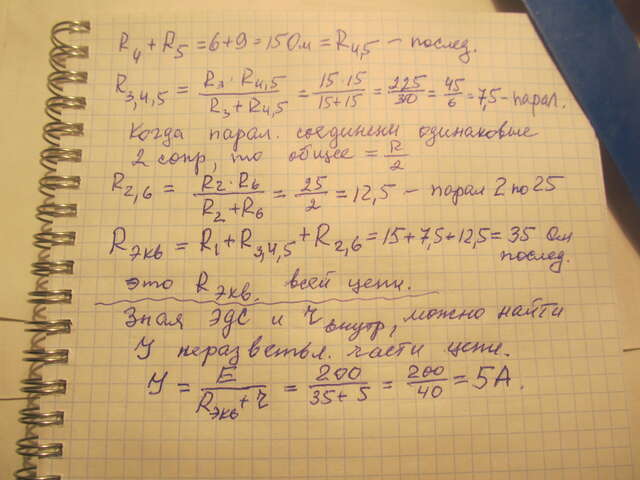 R₄ + R₅ = 6 + 9 = 15 Ом = R₄,₅ – послед.
R₃,₄,₅ = R₃ · R₄,₅ / R₃ + R₄,₅ = 15 · 15 / 15 + 15 = 225 / 30 = 45 / 6 = 7,5 – парал.
Когда парал. соединены одинаковые
2 сопр, то общее = R / 2
R₂,₆ = R₂ · R₆ / R₂ + R₆ = 25 / 2 = 12,5 – парал 2 по 25
Rэкв = R₁ + R₃,₄,₅ + R₂,₆ = 15 + 7,5 + 12,5 = 35 Ом
послед.
это Rэкв. всей цепи.
Зная ЭДС и r внутр, можно найти
У неразветвл. части цепи.
У = E / Rэкв + r = 200 / 35 + 5 = 200 / 40 = 5А.